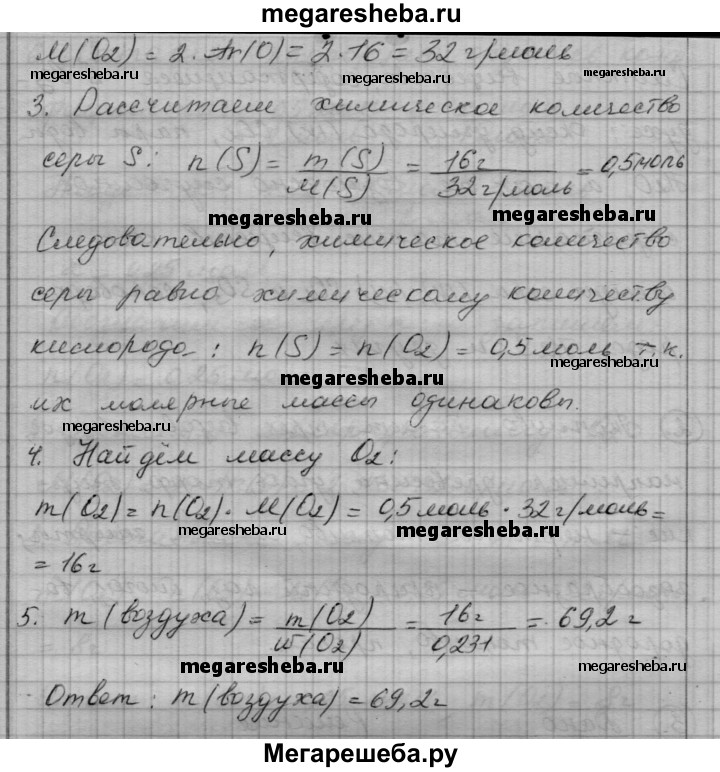 megaresheba.ru
M(O2) = 2 · Ar(O) = 2 · 16 = 32 г/моль
megaresheba.ru megaresheba.ru megaresheba.ru
3. Рассчитаем химическое количество
серы S: n(S) = m(S)/M(S) = 16г/32г/моль = 0,5моль
megaresheba.ru megaresheba.ru
Следовательно, химическое количество
серы равно химическому количеству
кислорода: n(S) = n(O2) = 0,5моль т.к.
megaresheba.ru megaresheba.ru
их молярные массы одинаковы.
megaresheba.ru megaresheba.ru
4. Найдём массу O2:
m(O2) = n(O2) · M(O2) = 0,5моль · 32г/моль =
megaresheba.ru megaresheba.ru
= 16г
5. m(воздуха) = m(O2)/w(O2) = 16г/0,231 = 69,2г
megaresheba.ru megaresheba.ru
Ответ: m(воздуха) = 69,2г
megaresheba.ru megaresheba.ru
Мегарешеба.ру